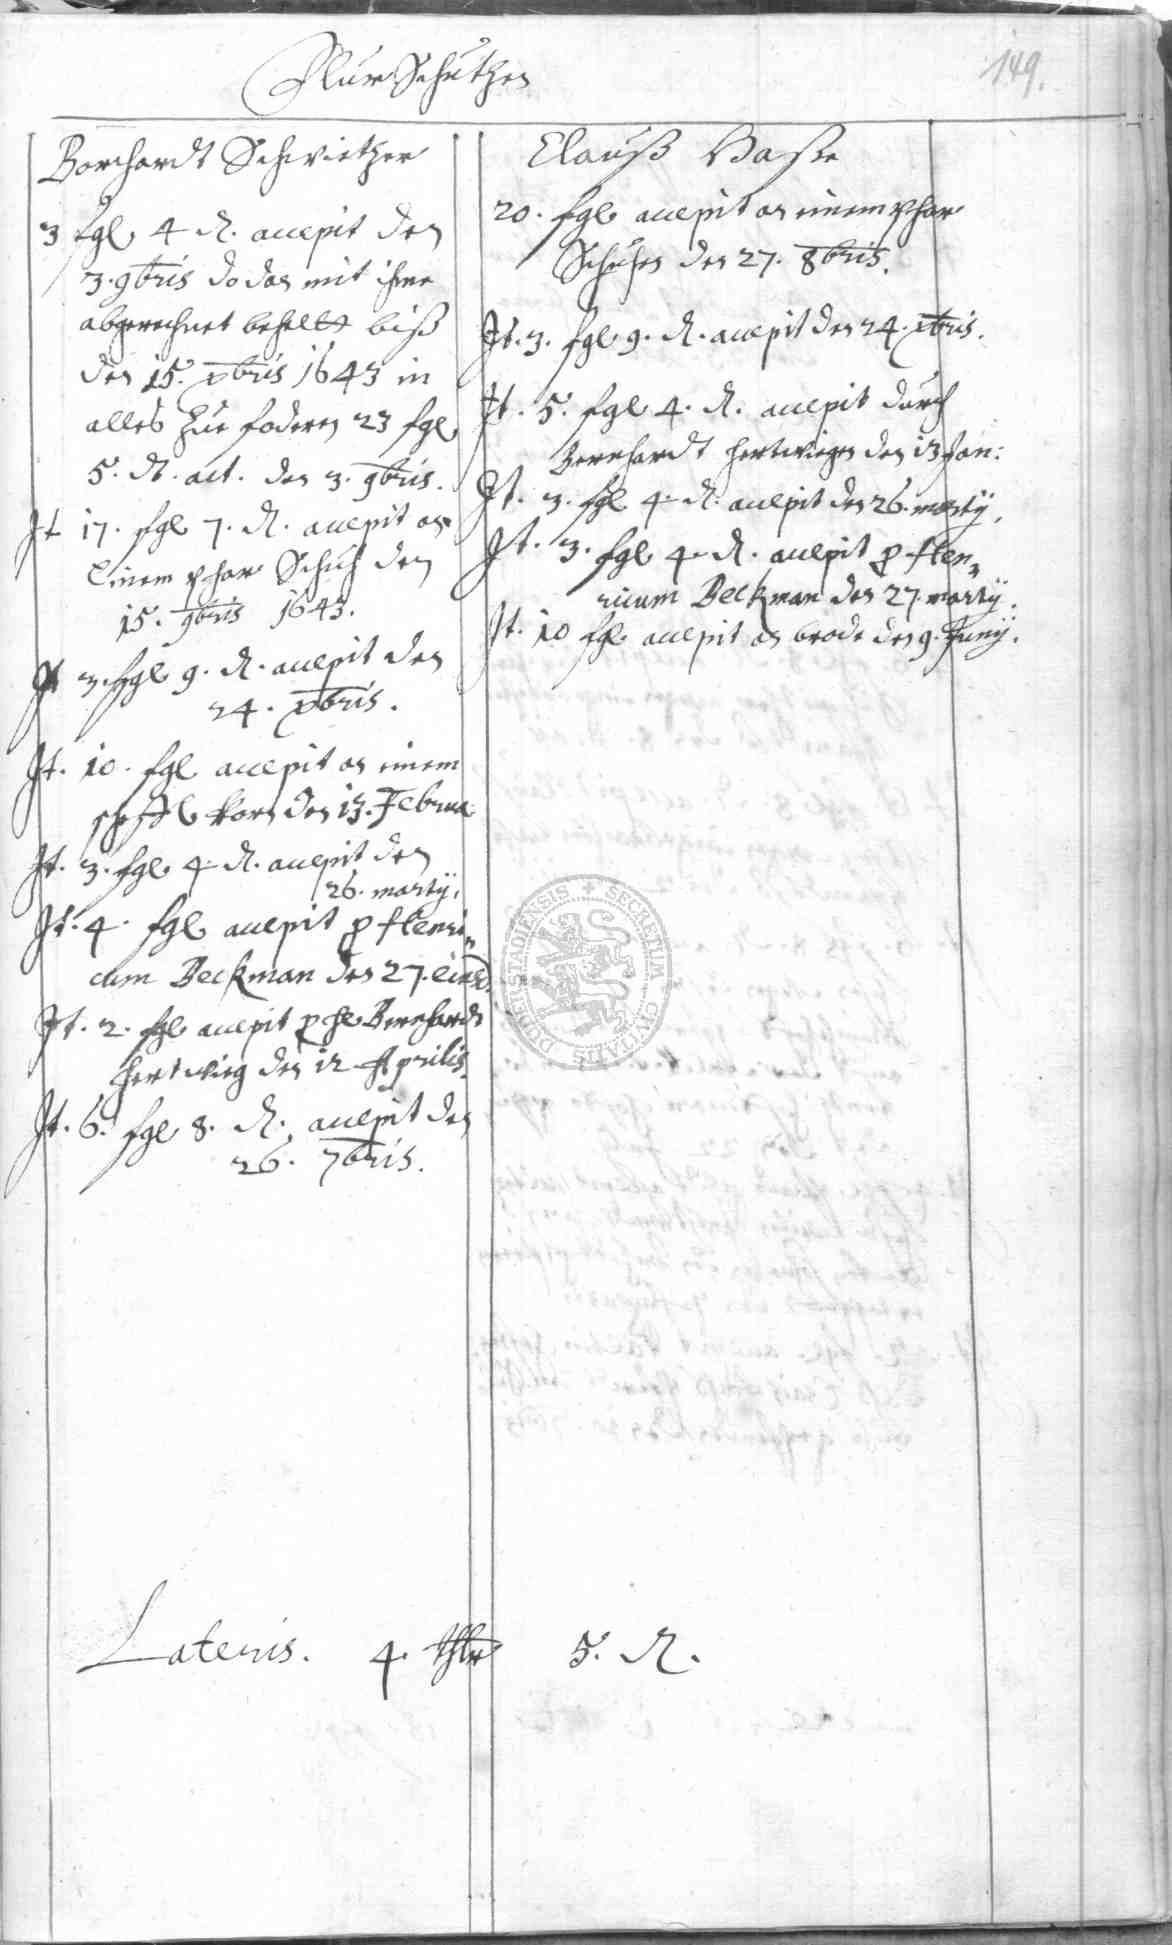 149.
Flur Schützen
Borchardt Schwiether
3 fgl 4 d. accepit den
3. 9bris do dan mit ihme
abgerechnet behelt biß
den 15. xbris 1643 in
alles zue foderen 23 fgl
5. d. act. den 3. 9bris.
It 17. fgl 7. d. accepit an
einem phar Schuh den
15. 9bris 1643.
It 3. fgl 9. d. accepit den
24. xbris.
It. 10. fgl accepit an einem
scheffl Korn den 13. Februa
It. 3. fgl 4 d. accepit den
26. martÿ.
It. 4. fgl accepit p Henri
cum Beckman den 27. eiusd.
It. 2. fgl accepit p Bernhardt
Hertwieg den 12 Aprilis.
It. 6. fgl 8. d. accepit den
26. 7bris.
Clauß Vasse
20. fgl accepit an einem phar
Schuhen den 27. 8bris.
It. 3. fgl 9. d. accepit den 24. xbris.
It. 5. fgl 4. d. accepit durch
Bernhardt Hertwiegen den 13 Jan:
It. 3. fgl 4. d. accepit den 26. martÿ.
It. 3. fgl 4 d. accepit p Hen
ricum Beckman den 27. martÿ.
It. 10 fgl accepit an brode den 9. Junÿ.
SECRETUM CIVITATIS DUDERSTADIENSIS
Lateris. 4. thlr 5. d.